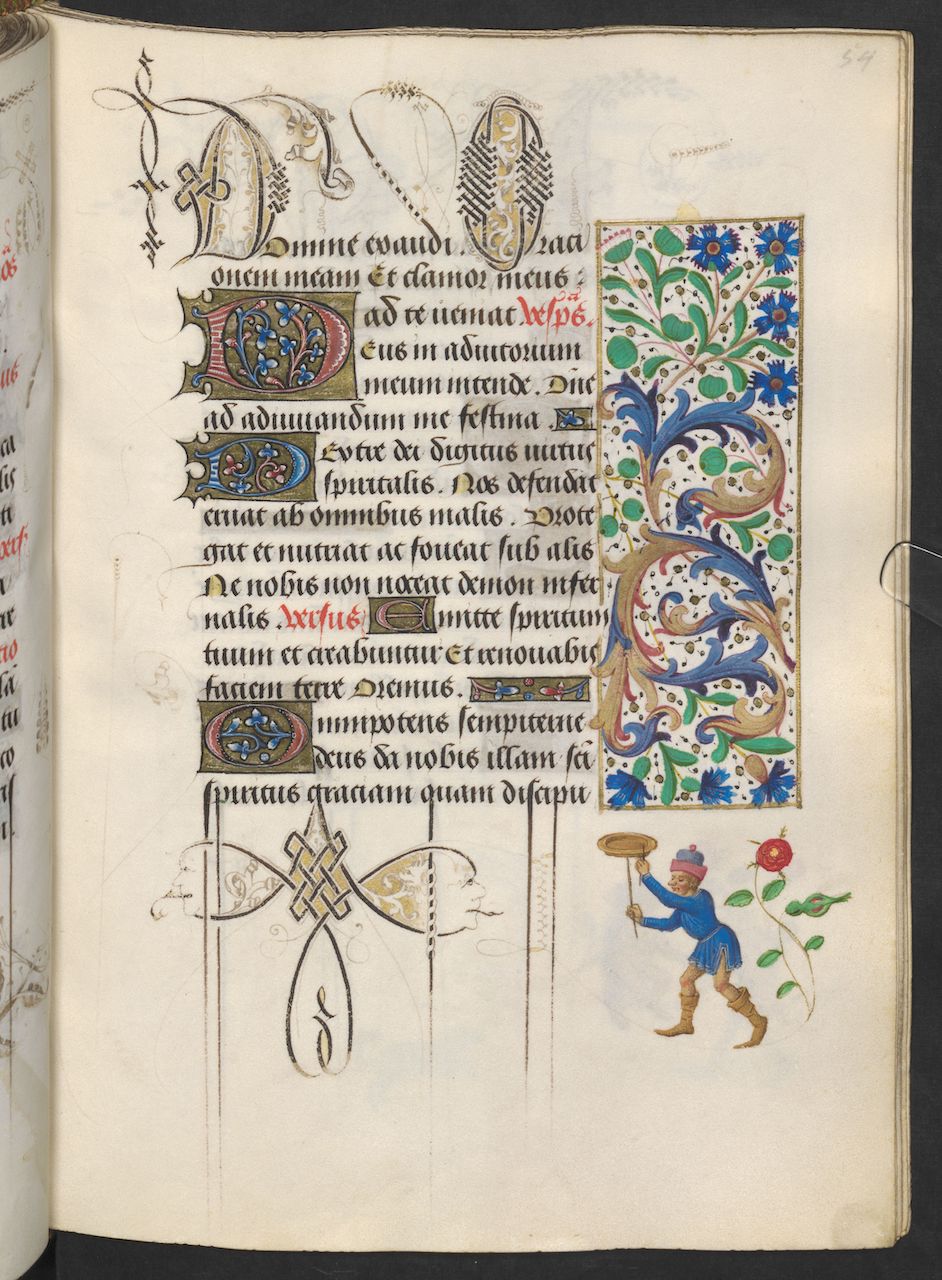 54
Domine exaudi. Orati
onem meam Et clamor meus
ad te veniat vesp̄s.ā
Deus in adiutorium
meum intende. Dn̄e
ad adiuuandum me festina.
Dextre dei digitus virtus
spiritalis. Nos defendat
eruat ab omnibus malis. Prote
gat et nutriat ac foueat sub alis
Ne nobis non noceat demon infer
nalis. versus Emitte spiritum
tuum et creabuntur Et renouabis
faciem terre Oremus.
Omnipotens sempiterne
deus da nobis illam sc̄i
spiritus graciam quam discipu